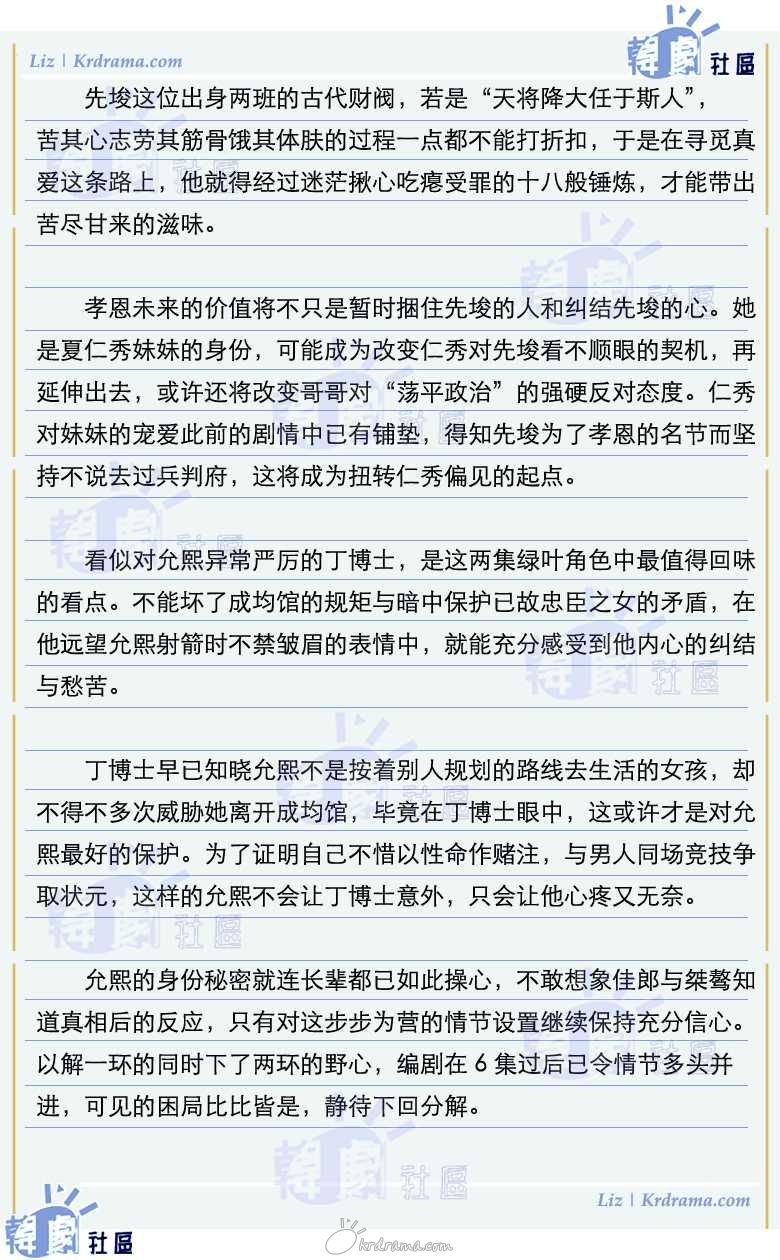 Liz | Krdrama.com
韓劇社區
先埈这位出身两班的古代财阀，若是“天将降大任于斯人”，
苦其心志劳其筋骨饿其体肤的过程一点都不能打折扣，于是在寻觅真
爱这条路上，他就得经过迷茫揪心吃瘪受罪的十八般锤炼，才能带出
苦尽甘来的滋味。
孝恩未来的价值将不只是暂时捆住先埈的人和纠结先埈的心。她
是夏仁秀妹妹的身份，可能成为改变仁秀对先埈看不顺眼的契机，再
延伸出去，或许还将改变哥哥对“荡平政治”的强硬反对态度。仁秀
对妹妹的宠爱此前的剧情中已有铺垫，得知先埈为了孝恩的名节而坚
持不说去过兵判府，这将成为扭转仁秀偏见的起点。
看似对允熙异常严厉的丁博士，是这两集绿叶角色中最值得回味
的看点。不能坏了成均馆的规矩与暗中保护已故忠臣之女的矛盾，在
他远望允熙射箭时不禁皱眉的表情中，就能充分感受到他内心的纠结
与愁苦。
丁博士早已知晓允熙不是按着别人规划的路线去生活的女孩，却
不得不多次威胁她离开成均馆，毕竟在丁博士眼中，这或许才是对允
熙最好的保护。为了证明自己不惜以性命作赌注，与男人同场竞技争
取状元，这样的允熙不会让丁博士意外，只会让他心疼又无奈。
允熙的身份秘密就连长辈都已如此操心，不敢想象佳郎与桀骜知
道真相后的反应，只有对这步步为营的情节设置继续保持充分信心。
以解一环的同时下了两环的野心，编剧在 6 集过后已令情节多头并
进，可见的困局比比皆是，静待下回分解。
Liz | Krdrama.com
韓劇社區
krdrama.com